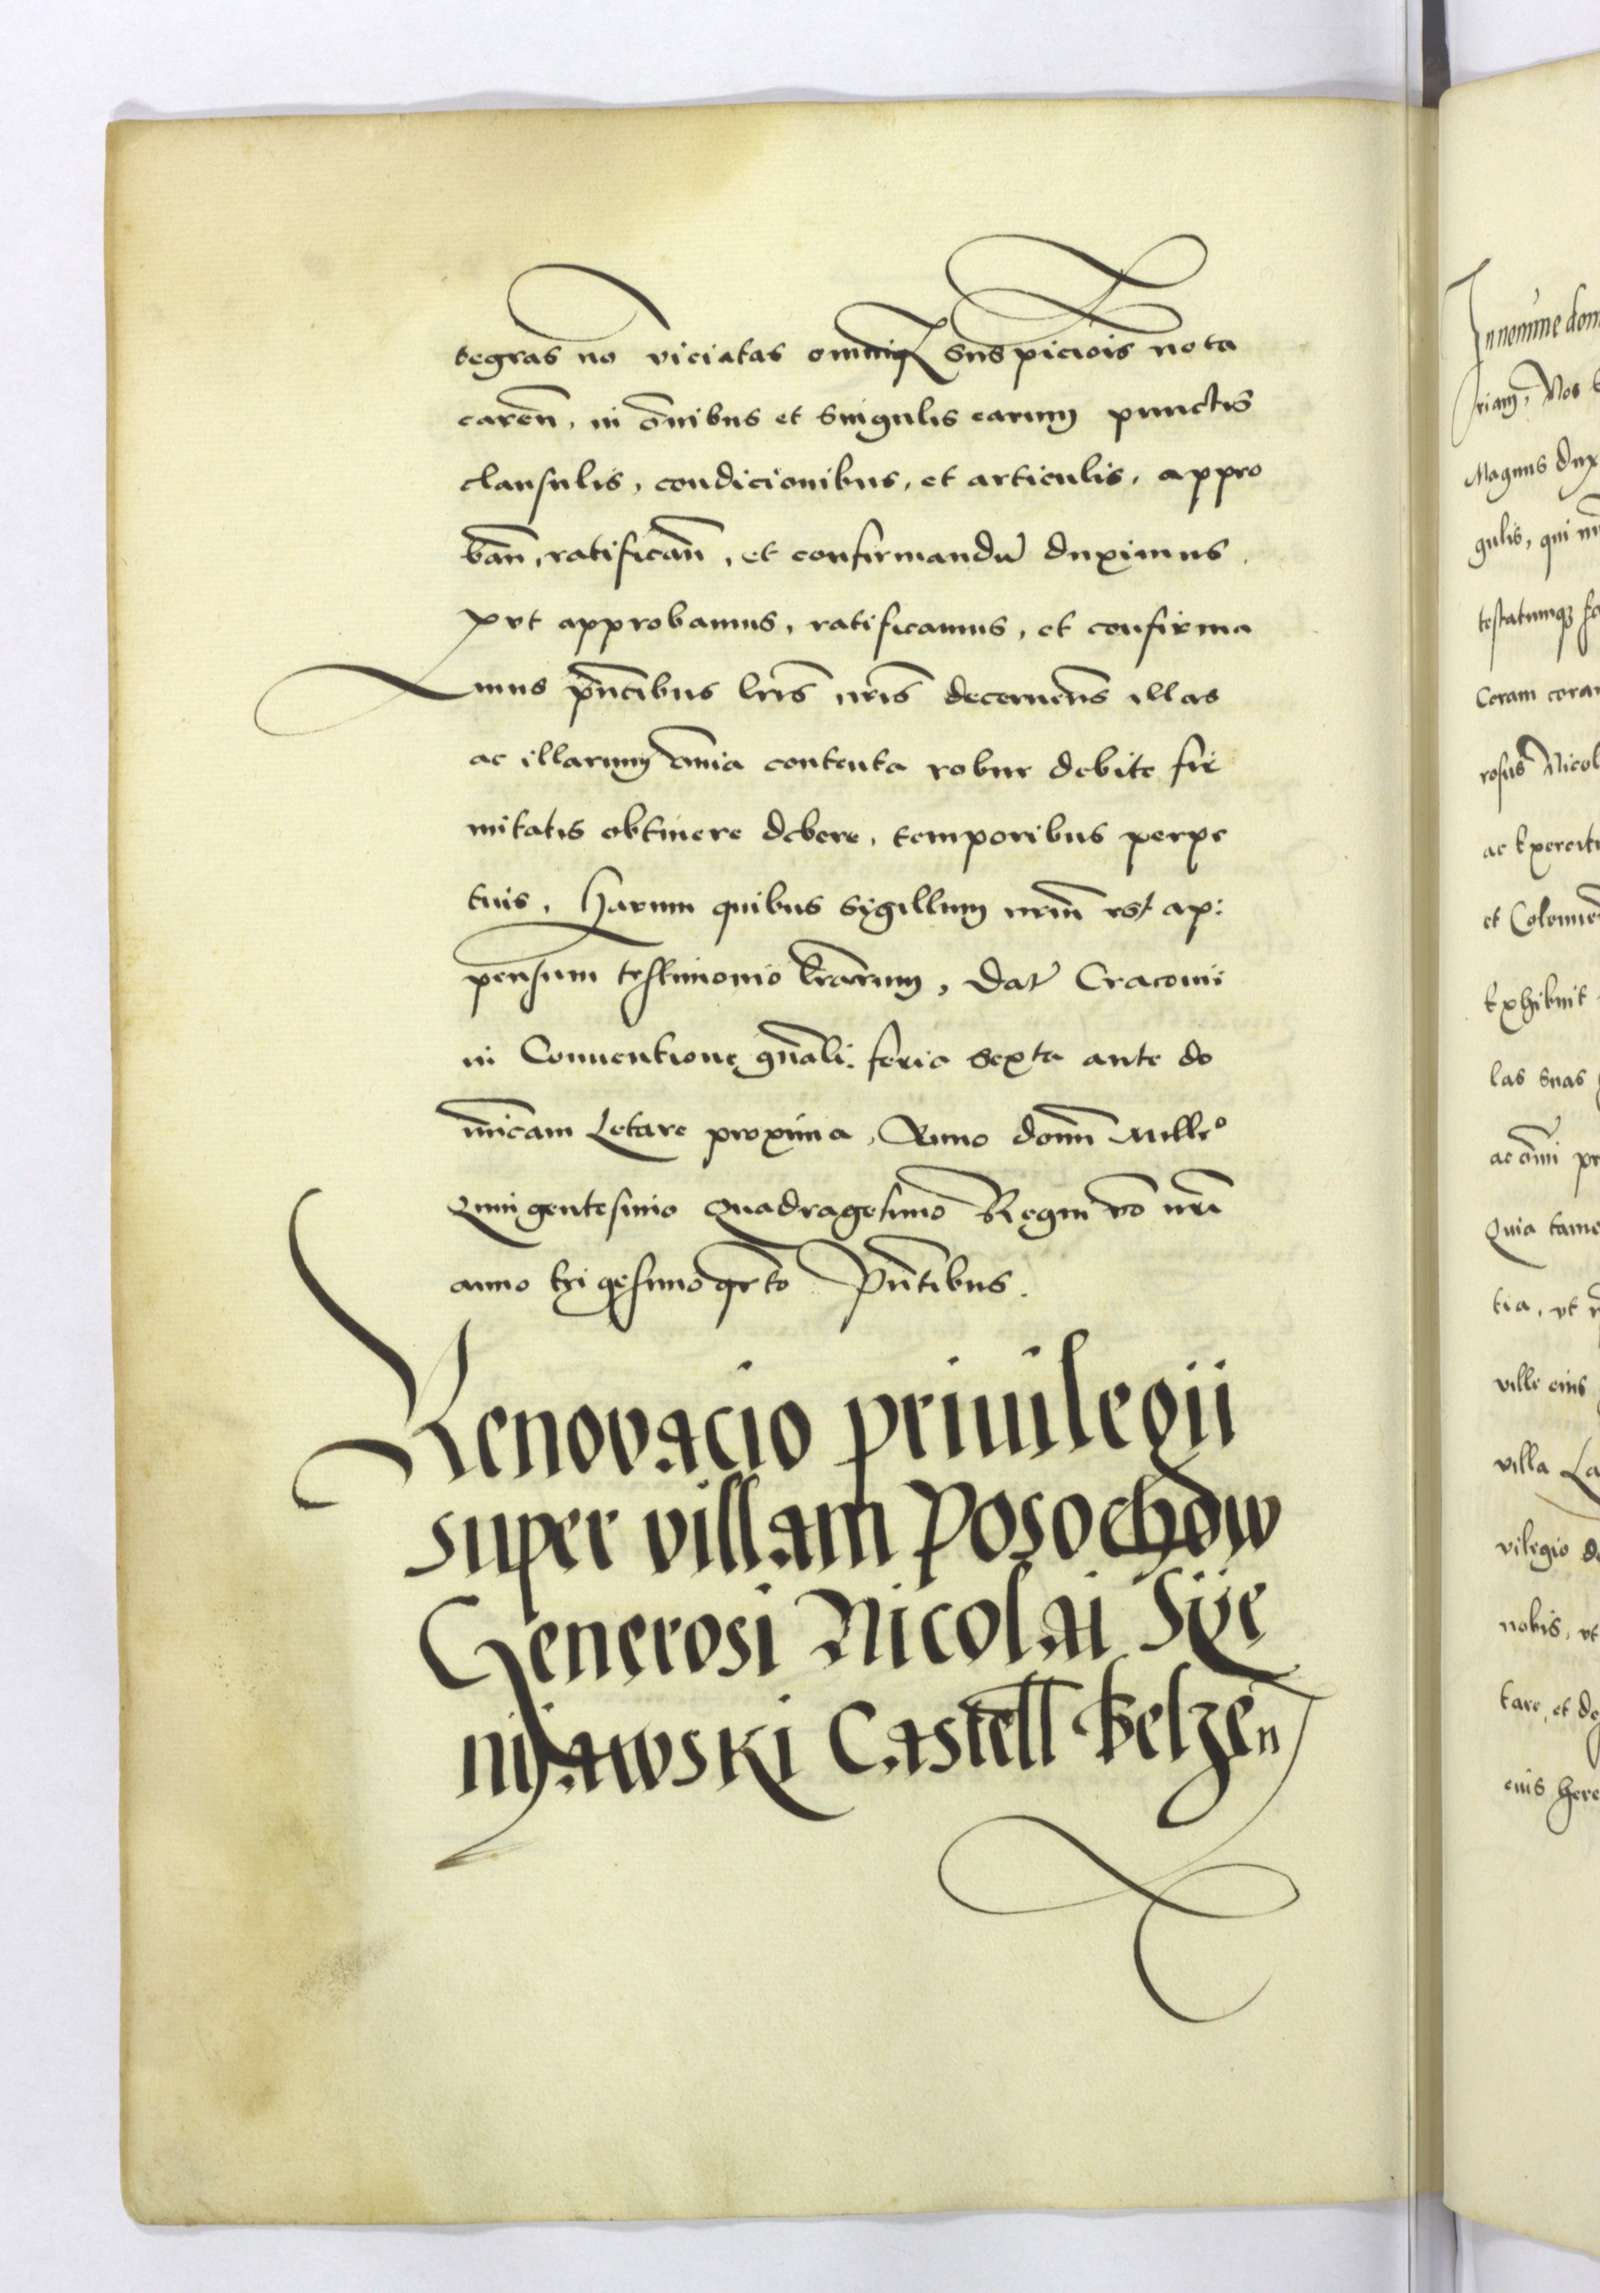 tegras no viciatas omniq₃ suspiciois nota
careñ, in o͞nibus et singulis earum punctis
clausulis, condicionibus, et articulis, appro
bañ, ratificañ, et confirmandu͞ duximus.
put approbamus, ratificamus, et confirma
mus p͞ntibus l͞ris n͞ris decernens͞ illas
ac illarum o͞mia contenta robur debite fir
mitatis obtinere debere, temporibus perpe
tuis, Harum quibus sygillum n͞rm est ap:
pensum testimonio l͞rarum, Dat Cracovie
in Conuentione g͞nali: feria sexta ante do
m͞icam Letare proxima, Anno dom͞i Mille°
Quingentesimo Quadragesimo Regni v͞o n͞ri
anno trigesimo q͞rto P͞ntibus.
Renovacio priuilegii
super villam Posochow
Generosi Nicolai Sye
nyawski Castell Belzen
In nomine dom
riam, Nos
Magnus dux
gulis, qui
testatumq₃
Coram
rosus Nicol
ac Exercit
et
Exhibuit
las suas
ac o͞mi
Quia tame
tia, ut
ville eius
villa La
vilegio de
nobis, ut
tare, et de
eius here